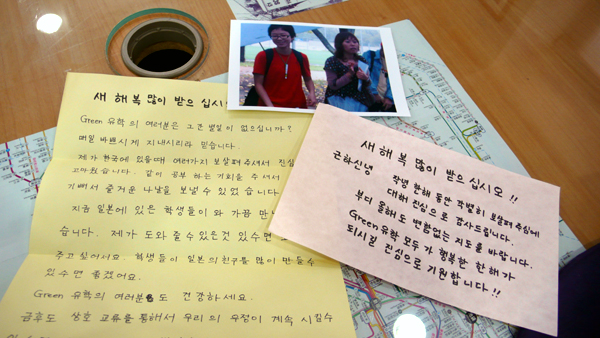 새 해 복 많이 받으 십시
Green 유학의 여러분은 그간 별일이 없으십니까?
매일 바쁘시게 지내시리라 믿습니다.
제가 한국에 있을때 여러가지 보살펴 주셔서 진심
고마웠습니다. 같이 공부 하는 기회을 주셔서
기뻐서 즐거운 나날을 보낼수 있었습니다
지금 일본에 있은 학생들이 와 가끔 만
습니다. 제가 도와 줄수 있은것 있수면
주고 싶어요. 학생들이 일본의 친구를 많이 만들수
있수면 좋겠어요.
Green 유학의 여러분도 건강하세요.
금후도 상호 교류를 통해서 우리의 우정이 계속 시킬수
새 해 복 많이 받으 십시오 !!
근하신년
작년 한해 동안 각별히 보살펴 주심에
대해 진심으로 감사드립니다.
부디 올해도 변함없는 지도를 바랍니다.
Green유학 모두가 행복한 한해가
되시길 진심으로 기원합니다 !!